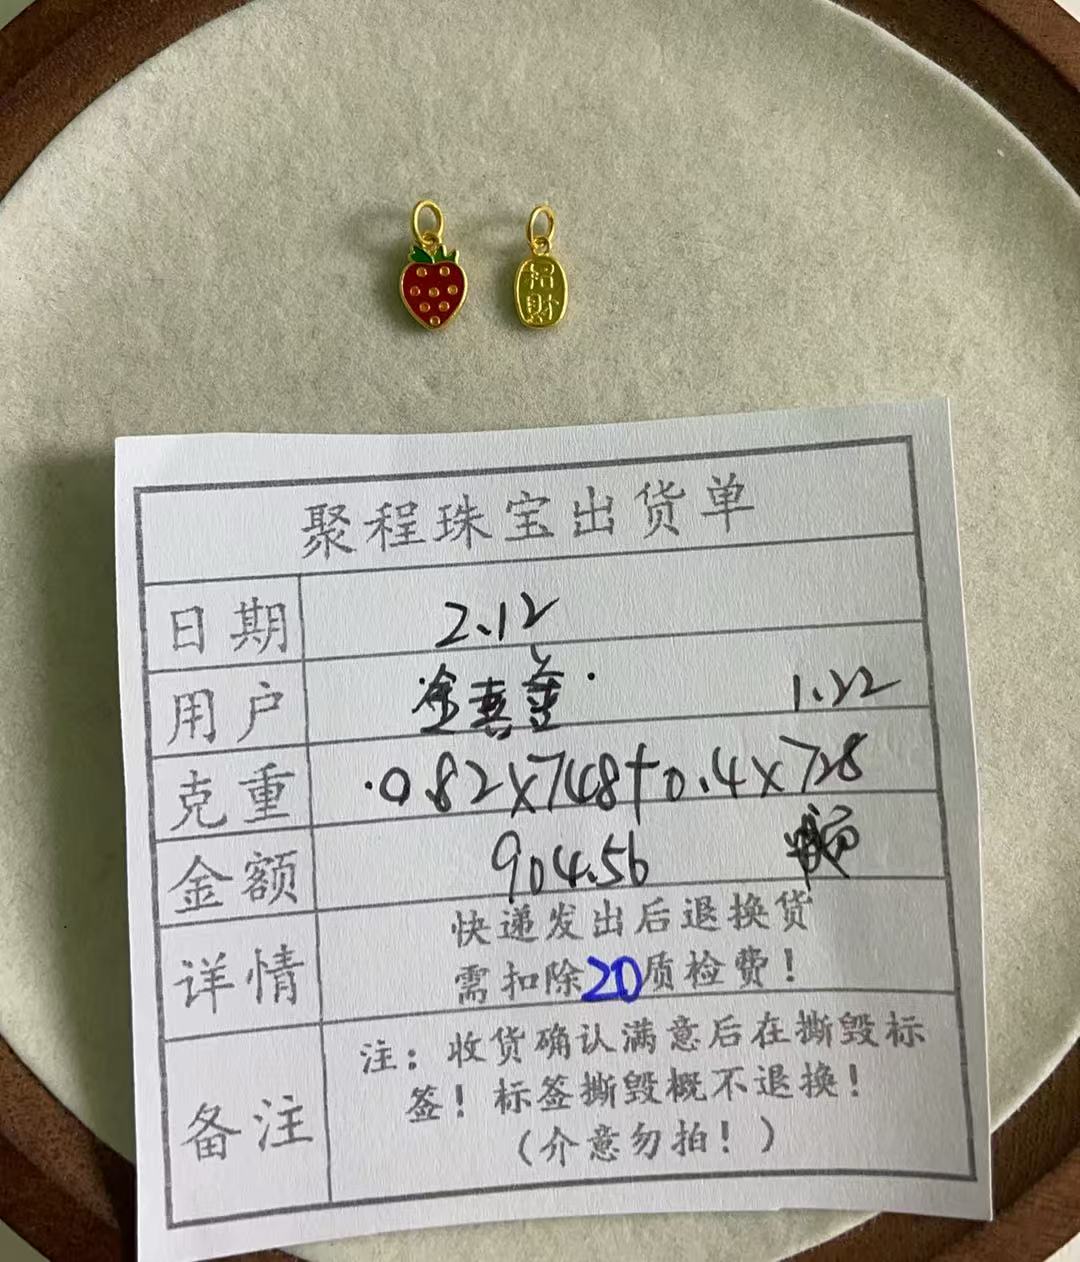 招
財
聚程珠宝出货单
日期 2.12
用户 金喜金 1.22
克重 0.82×748+0.4×728
金额 904.56
详情 快递发出后退换货
需扣除20质检费!
备注 注:收货确认满意后在撕毁标
签!标签撕毁概不退换!
(介意勿拍!)